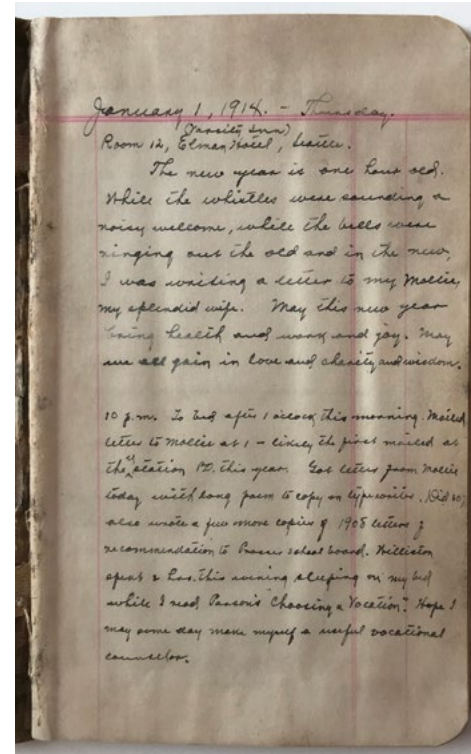 January 1, 1914. - Thursday.
(Varsity Inn)
Room 12, Elman Hotel, Seattle.
The new year is one hour old.
While the whistles were sounding a
noisy welcome, while the bells were
ringing out the old and in the new,
I was writing a letter to my Mollie,
my splendid wife. May this new year
bring health and work and joy. May
we all gain in love and charity and wisdom.
10 p.m. To bed after 1 oclock this morning. Mailed
letter to Mollie at 1 - likely the first mailed at
the station P.O. this year. Got letter from Mollie
today with long poem to copy on typewriter. (Did so)
also wrote a few more copies of 1908 letters of
recommendation to Prosser school board. Williston
spent 2 hrs. this evening sleeping on my bed
while I read Parson's "Choosing a Vocation". Hope I
may some day make myself a useful vocational
counsellor.